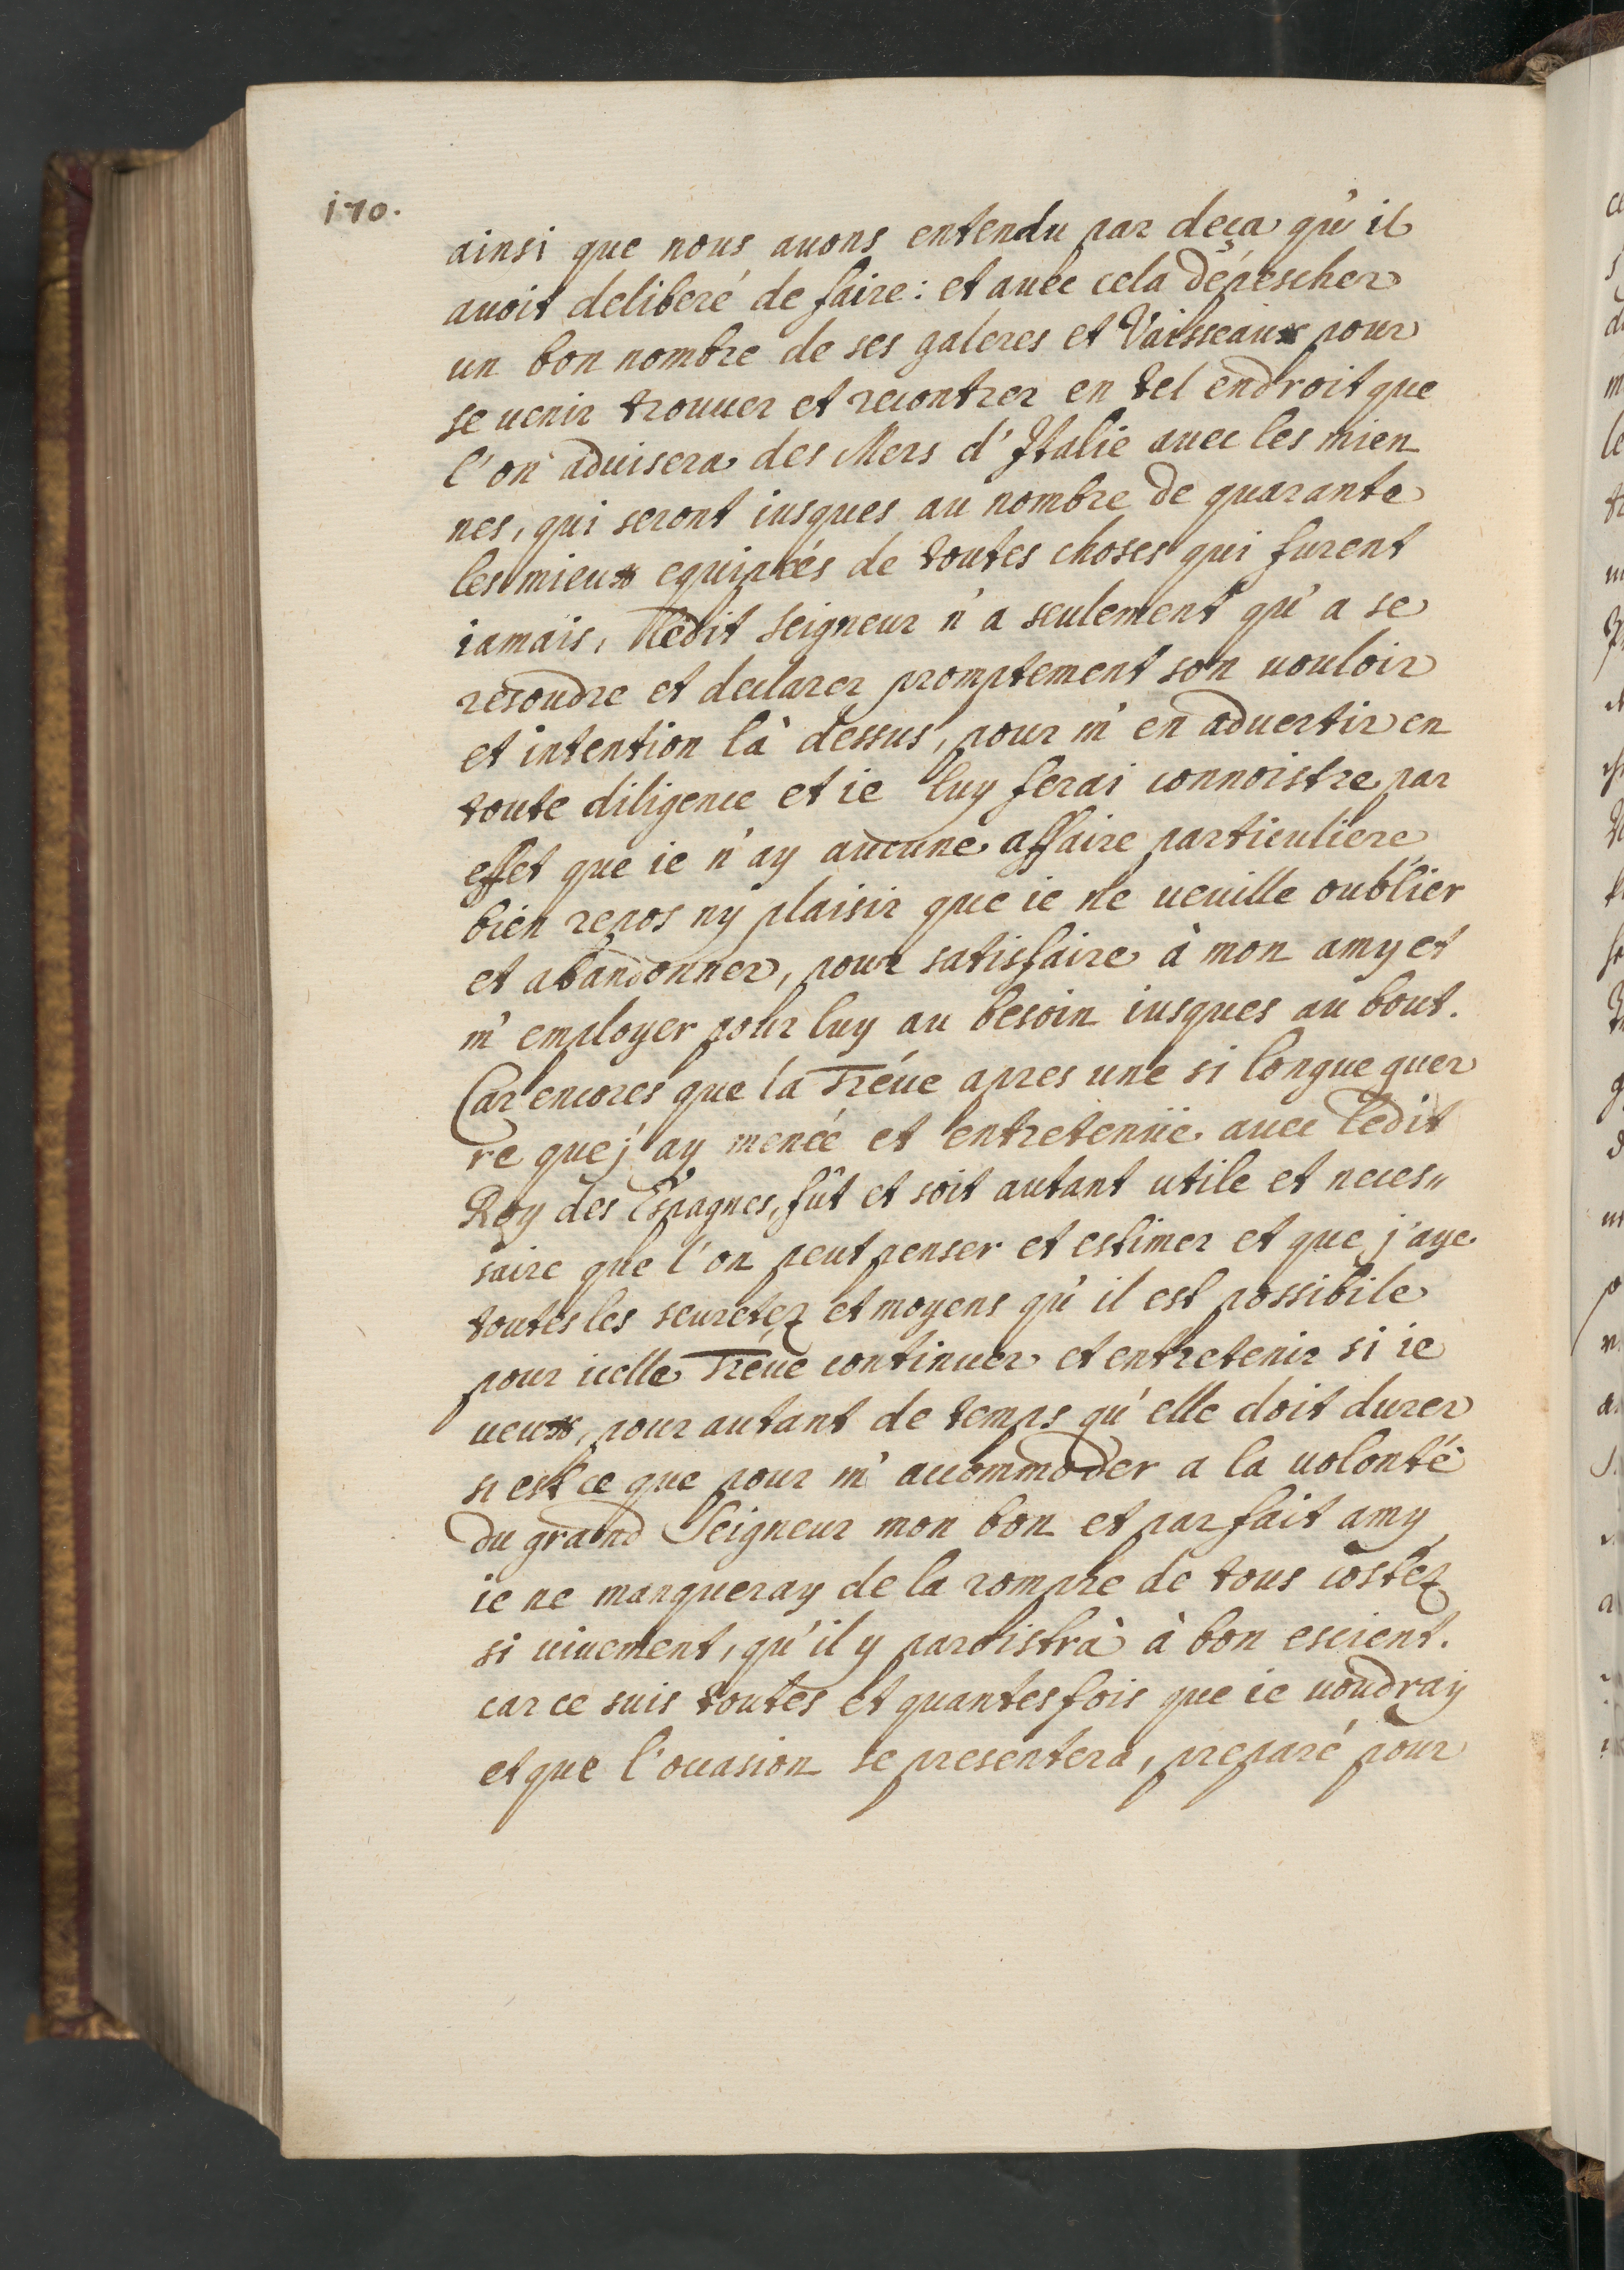 170.
ainsi que nous auons entendu par deça qu'il
auoit deliberé de faire: et auec cela dépescher
un bon nombre de ses galeres et Vaisseaux pour
se uenir trouuer et recontrer en tel endroit que
l'on aduisera des Mers d'Italie auec les mien
nes, qui seront iusques au nombre de quarante
les mieux equipées de toutes choses qui furent
iamais, ledit seigneur n'a seulement qu'a se
resoudre et declarer promptement son uouloir
et intention là dessus, pour m'en aduertir en
toute diligence et ie luy ferai connoistre par
effet que ie n'ay aucune affaire particuliere
bien repos ny plaisir que ie ne ueuille oublier
et abandonner, pour satisfaire à mon amy et
m'employer pour luy au besoin iusques au bout.
Car encores que la Tréue apres une si longue guer
re que j'ay menée et entretenüe auec ledit
Roy des Espagnes, fût et soit autant utile et neces〃
saire que l'on peut penser et estimer et que j'aye
toutes les seuretez et moyens qu'il est possibile
pour icelle Tréue continuer et entretenir si ie
ueux, pour autant de temps qu'elle doit durer
si est ce que pour m'accommoder a la uolonté
du grand Seigneur mon bon et parfait amy
ie ne manqueray de la rompre de tous costez
si uiuement, qu'il y paroistrà à bon escient.
car ce suis toutes et quantesfois que ie uoudray
et que l'occasion se presentera, preparé pour